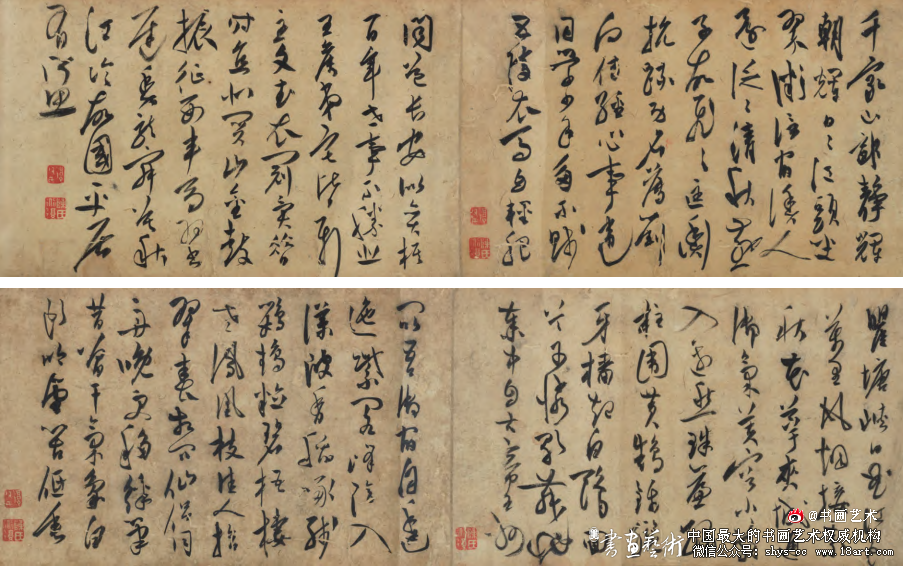 千家山郭靜輝
朝輝日〻江頭坐
翠微信宿漁人
還泛〻清秋燕
子故飛〻匡衡
抗疏功名薄劉
向傳經心事違
同學少年多不賤
五陵衣馬自輕肥
聞道長安似奕棋
百年世事不勝悲
王侯第宅皆新
主文武衣冠異昔
時直北關山金鼓
振征西車馬羽書
遲魚龍寂寞秋
江冷故國平居
有所思
瞿塘峽口曲
萬里風烟接
秋花萼夾城通
御氣芙蓉小
入邊愁珠簾
柱圍黃鵠錦
牙檣起白鷗回
首可憐歌舞地
秦中自古帝王州
昆吾御宿自逶
迤紫閣峰陰入
渼陂香稻啄殘
鸚鵡粒碧梧棲
老鳳凰枝佳人拾
翠春相問仙侶同
舟晚更移綵筆
昔曾干氣象白
頭吟望苦低垂
@书画艺术
書畫藝術 中国最大的书画艺术权威机构
微信公众号：shys-cc www.18art.com